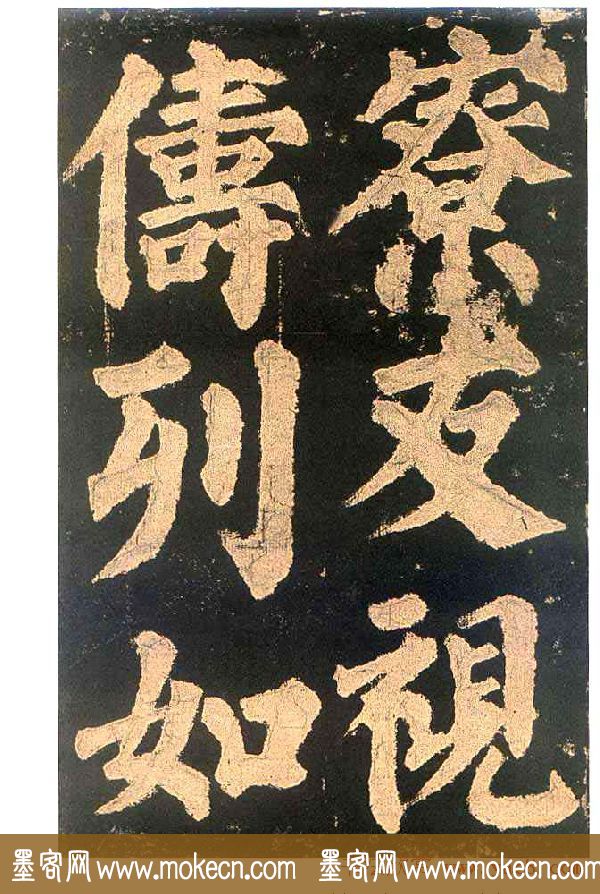 寮友視
儔列如
墨客网 www.mokecn.com 墨客网 www.mokecn.com